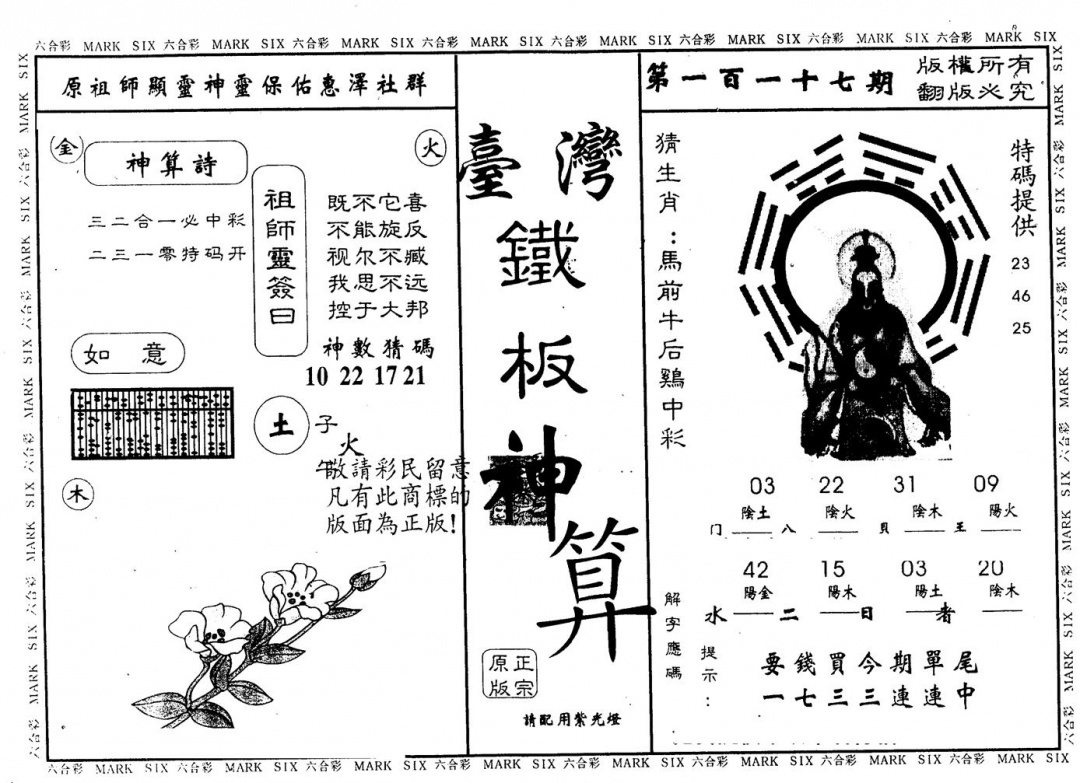 六合彩 MARK SIX 六合彩 MARK SIX 六合彩 MARK SIX 六合彩 MARK SIX 六合彩 MARK SIX 六合彩 MARK SIX 六合彩 MARK SIX 六合彩 MARK SIX
原祖師顯靈神靈保佑惠澤社群
第一百一十七期
版權所有
翻版必究
金
神算詩
三二合一必中彩
二三一零特码开
火
祖師靈簽曰
既不它喜
不能旋反
视尔不臧
我思不远
控于大邦
神數猜碼
10 22 17 21
如意
土
子
火
午
木
敬請彩民留意
凡有此商標的
版面為正版!
臺灣
鐵
板
神
算
正宗
原版
請配用紫光燈
猜生肖:馬前牛后鷄中彩
特碼提供
23
46
25
03 22 31 09
陰土 陰火 陰木 陽火
门 八 貝 王
42 15 03 20
陽金 陽木 陽土 陰木
水 二 日 者
解字應碼
提示:
要錢買今期單尾
一七三三連連中
六合彩 MARK SIX 六合彩 MARK SIX 六合彩 MARK SIX 六合彩 MARK SIX 六合彩 MARK SIX 六合彩 MARK SIX 六合彩 MARK SIX 六合彩 MARK SIX